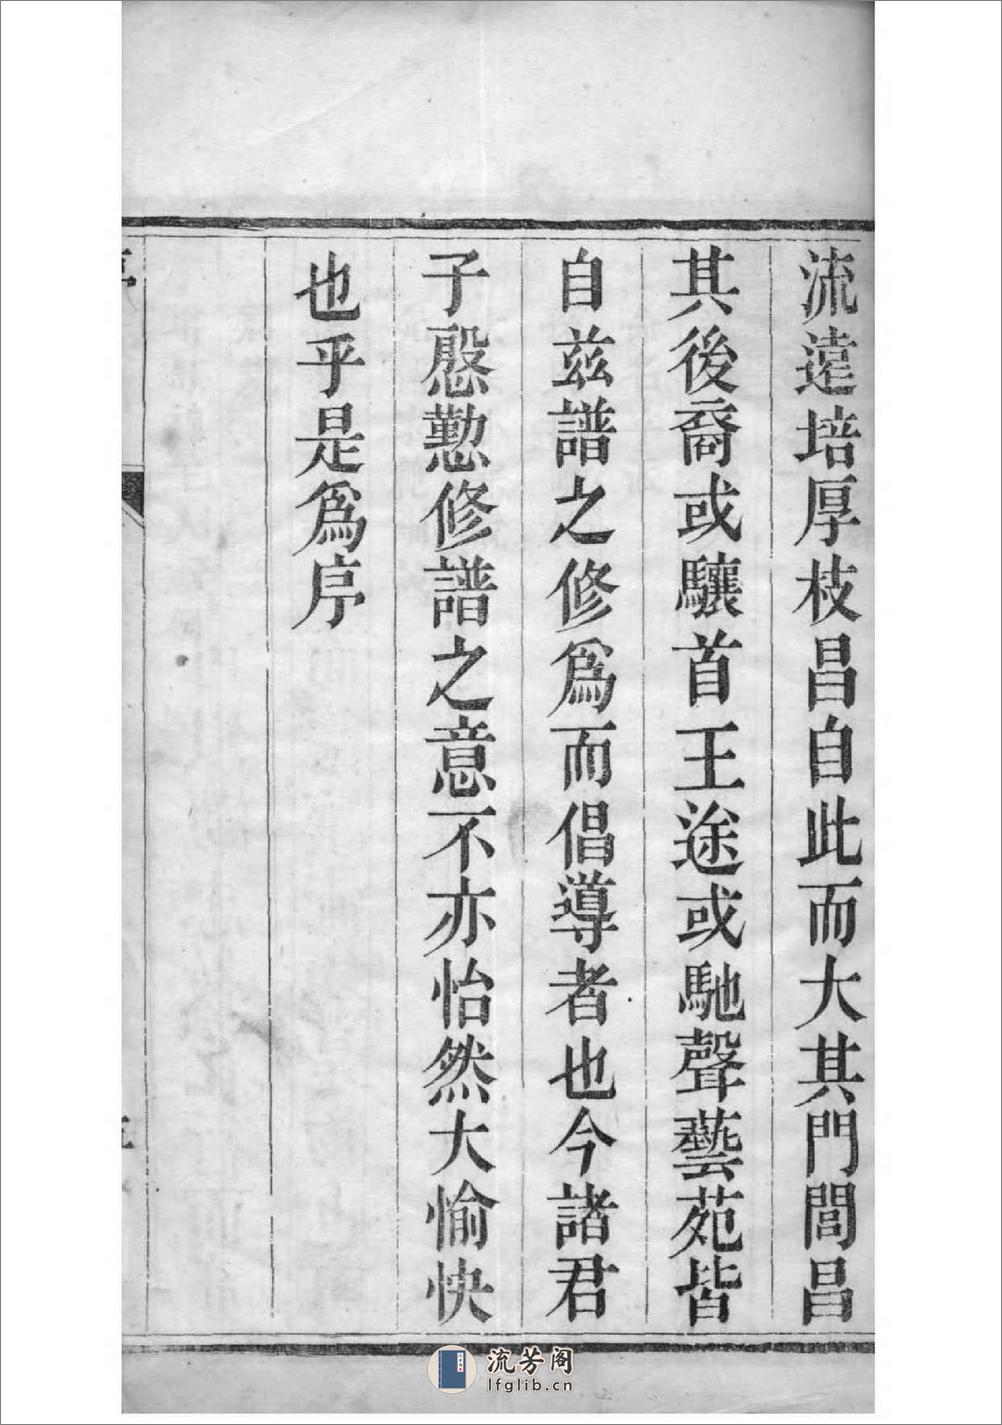 流遠培厚枝昌自此而大其門閭昌
其後裔或驤首王途或馳聲藝苑皆
自茲譜之修爲而倡導者也今諸君
子慇懃修譜之意不亦怡然大愉快
也乎是爲序
流芳阁
lfglib.cn